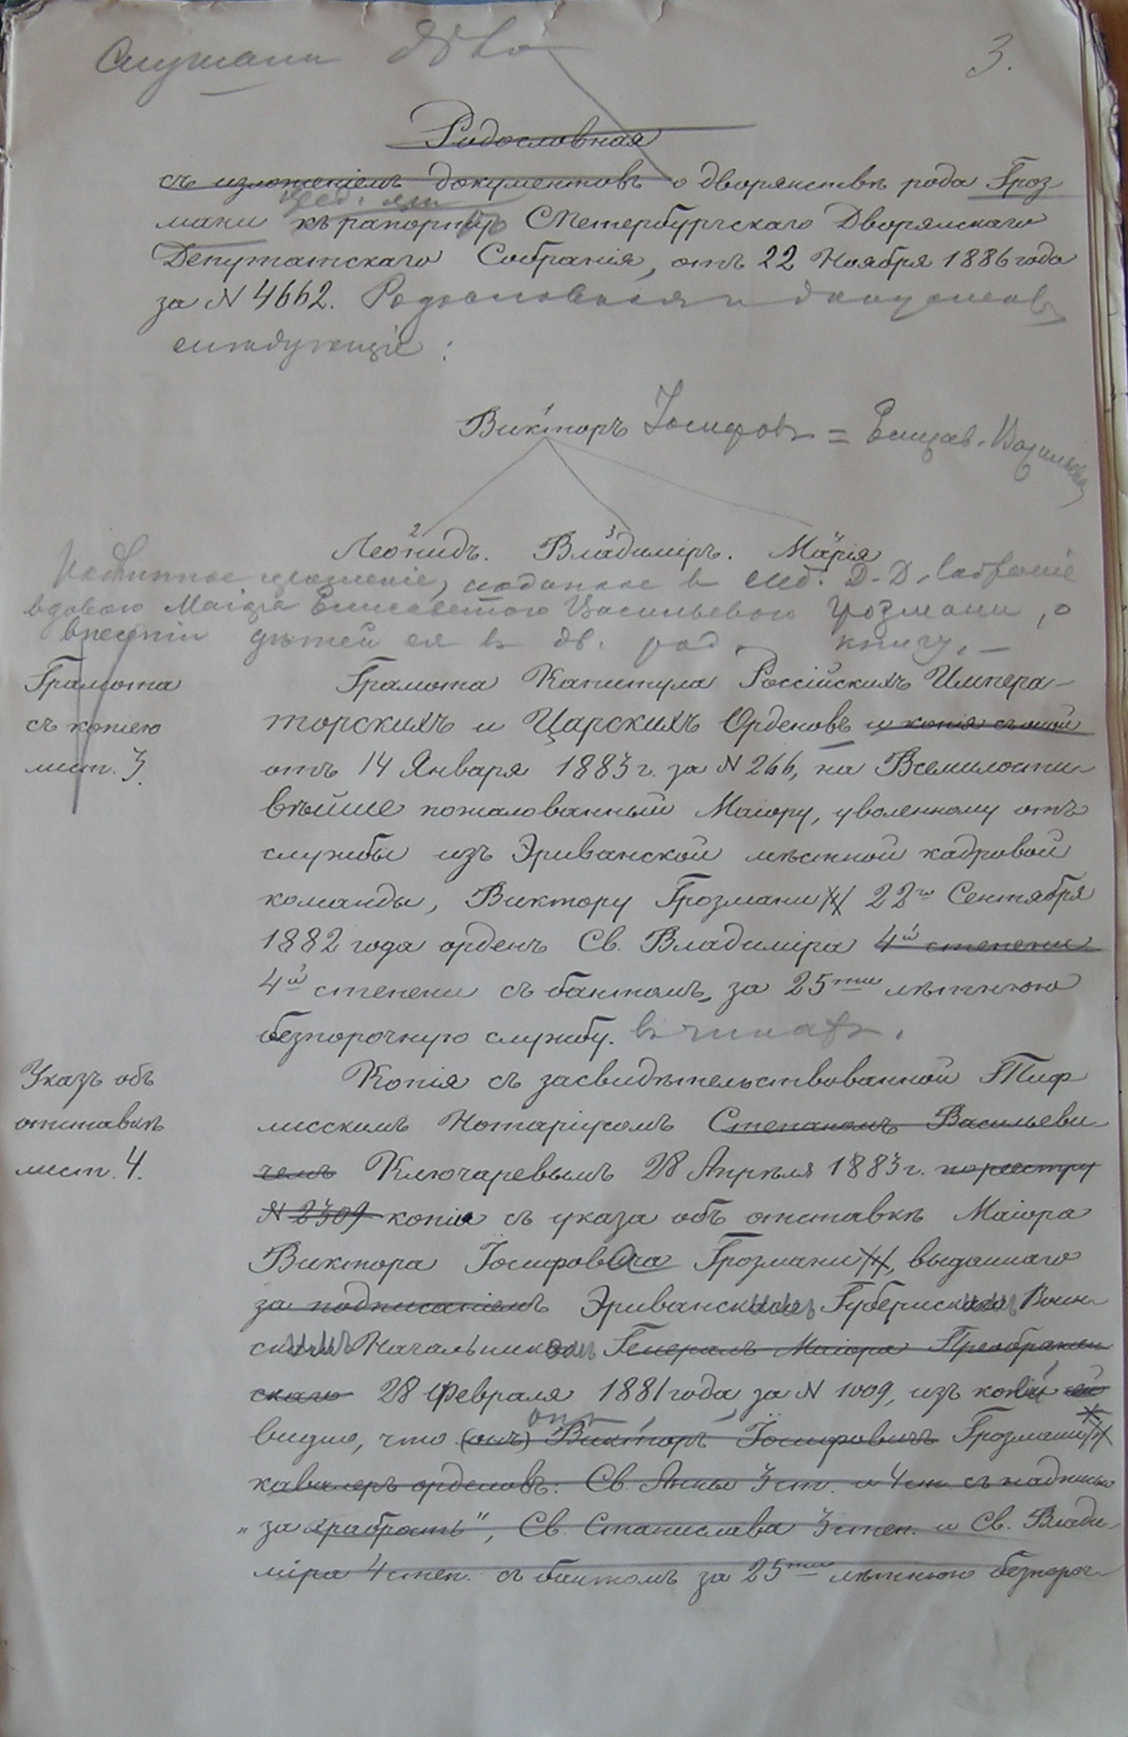 Слушали дѣло
3.
Родословная
съ изложеніемъ документовъ о дворянствѣ рода Гроз
мани къ рапорту СПетербургскаго Дворянскаго
Депутатскаго Собранія, отъ 22 Ноября 1886 года
за N 4662. Родословная и документы
слѣдующіе:
1
Викторъ Іосифовъ = Елизав. Васильевна
2 3
Леонидъ. Владиміръ. Марія
прошеніе, поданное в Деп. Д. Д. Собраніе
вдовою Маіора Елисаветою Васильевою Грозмани, о
внесеніи дѣтей ея въ дв. род. книгу. —
Грамота
съ копіею
лист. 3
Грамота Капитула Россійскихъ Импера-
торскихъ и Царскихъ Орденовъ и копія съ оной
отъ 14 Января 1883 г. за N 266, на Всемилости-
вѣйше пожалованный Маіору, уволенному отъ
службы изъ Эриванской мѣстной кадровой
команды, Виктору Грозмани 22го Сентября
1882 года орденъ Св. Владиміра 4й степени
4й степени съ бантомъ, за 25ти лѣтнюю
безпорочную службу. въ чинахъ.
Указъ объ
отставкѣ
лист. 4.
Копія съ засвидѣтельствованной Тиф
лисскимъ Нотаріусомъ Степаномъ Васильеви
чемъ Ключаревымъ 28 Апрѣля 1883 г. по реестру
N 2309 копіи съ указа объ отставкѣ Маіора
Виктора Іосифовича Грозмани, выданнаго
за подписаніемъ Эриванскимъ Губернскимъ Воин-
скимъ Начальникомъ Генералъ Маіора Преображен
скаго 28 Февраля 1881 года, за N 1009, изъ копіи ей
видно, что (онъ) онъ Викторъ Іосифовичъ Грозмани
кавалеръ орденовъ: Св. Анны 3 ст. и 4 ст. съ надписью
„за храбрость", Св. Станислава 3 степ. и Св. Влади-
міра 4 степ. съ бантомъ за 25ти лѣтнюю безпороч-